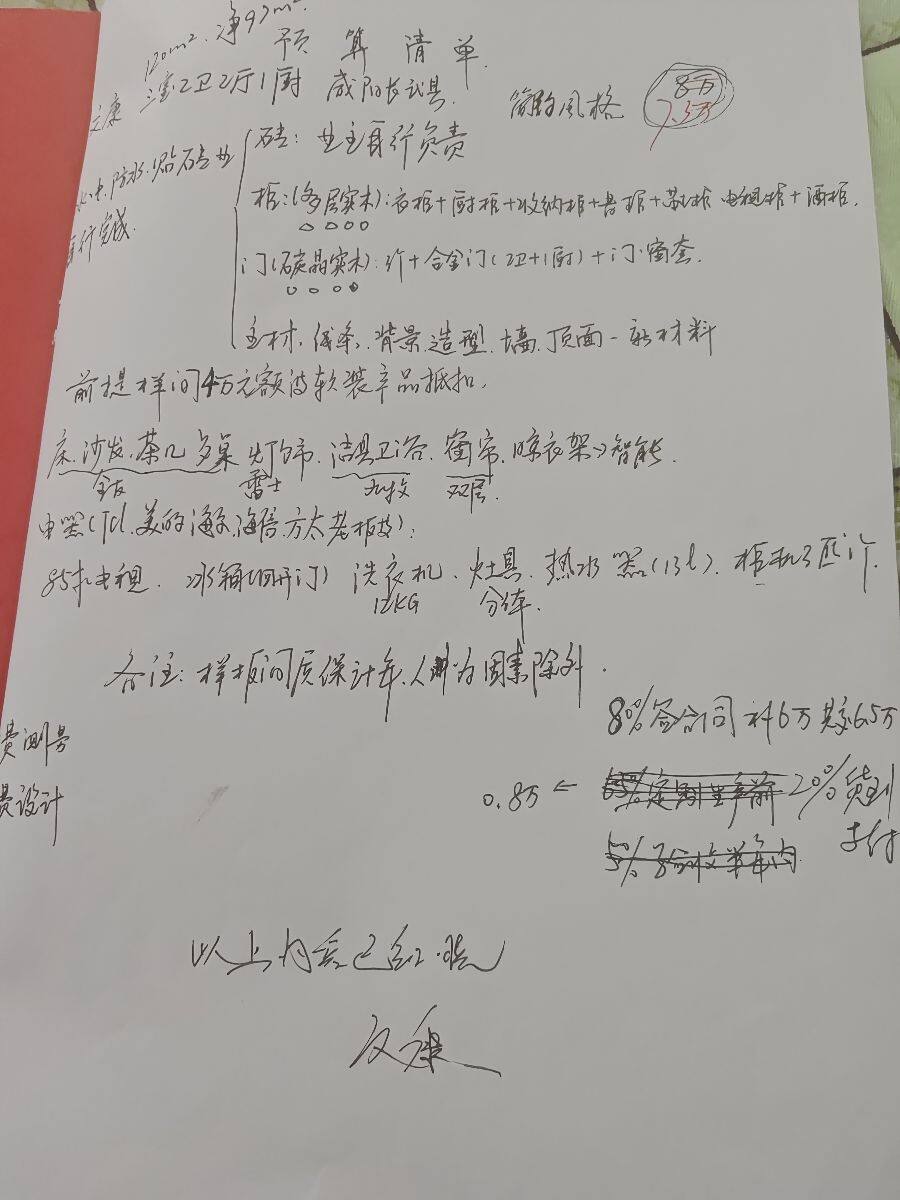 120m². 净97m².
预算清单
三室2卫2厅1厨 咸阳长武县. 简约风格 8万
7.3万
水电.防水.贴砖业
自行完成.
砖：业主自行负责
柜：(多层实木)：衣柜+厨柜+收纳柜+书柜+鞋柜 电视柜+酒柜.
门(碳晶实木)：5个+合金门(2卫+1厨)+门.窗套.
主材、线条、背景、造型、墙、顶面一新材料
前提样间4万元额为软装产品抵扣.
床、沙发、茶几 灯饰、洁具卫浴、窗帘、晾衣架 智能.
全友 雷士 九牧 双层
电器(Tcl、美的 海尔、海信、方太 老板)：
85寸电视. 冰箱(四开门) 洗衣机、灶具、热水器(13l). 柜机3匹1个.
12KG 分体.
备注：样板间质保计年、人为因素除外.
80%签合同 补6万 共交6.5万
费测房
费设计
0.8万 ← 20%货到
支付
以上内容已知晓